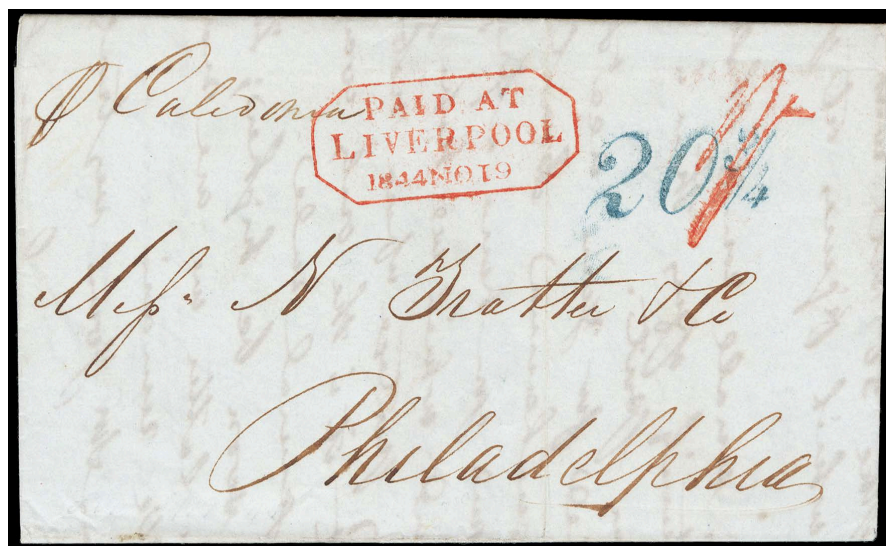 ℗ Caledonia
PAID AT
LIVERPOOL
1844 NO 19
20 3/4
1/-
Messrs N Trotter & Co
Philadelphia